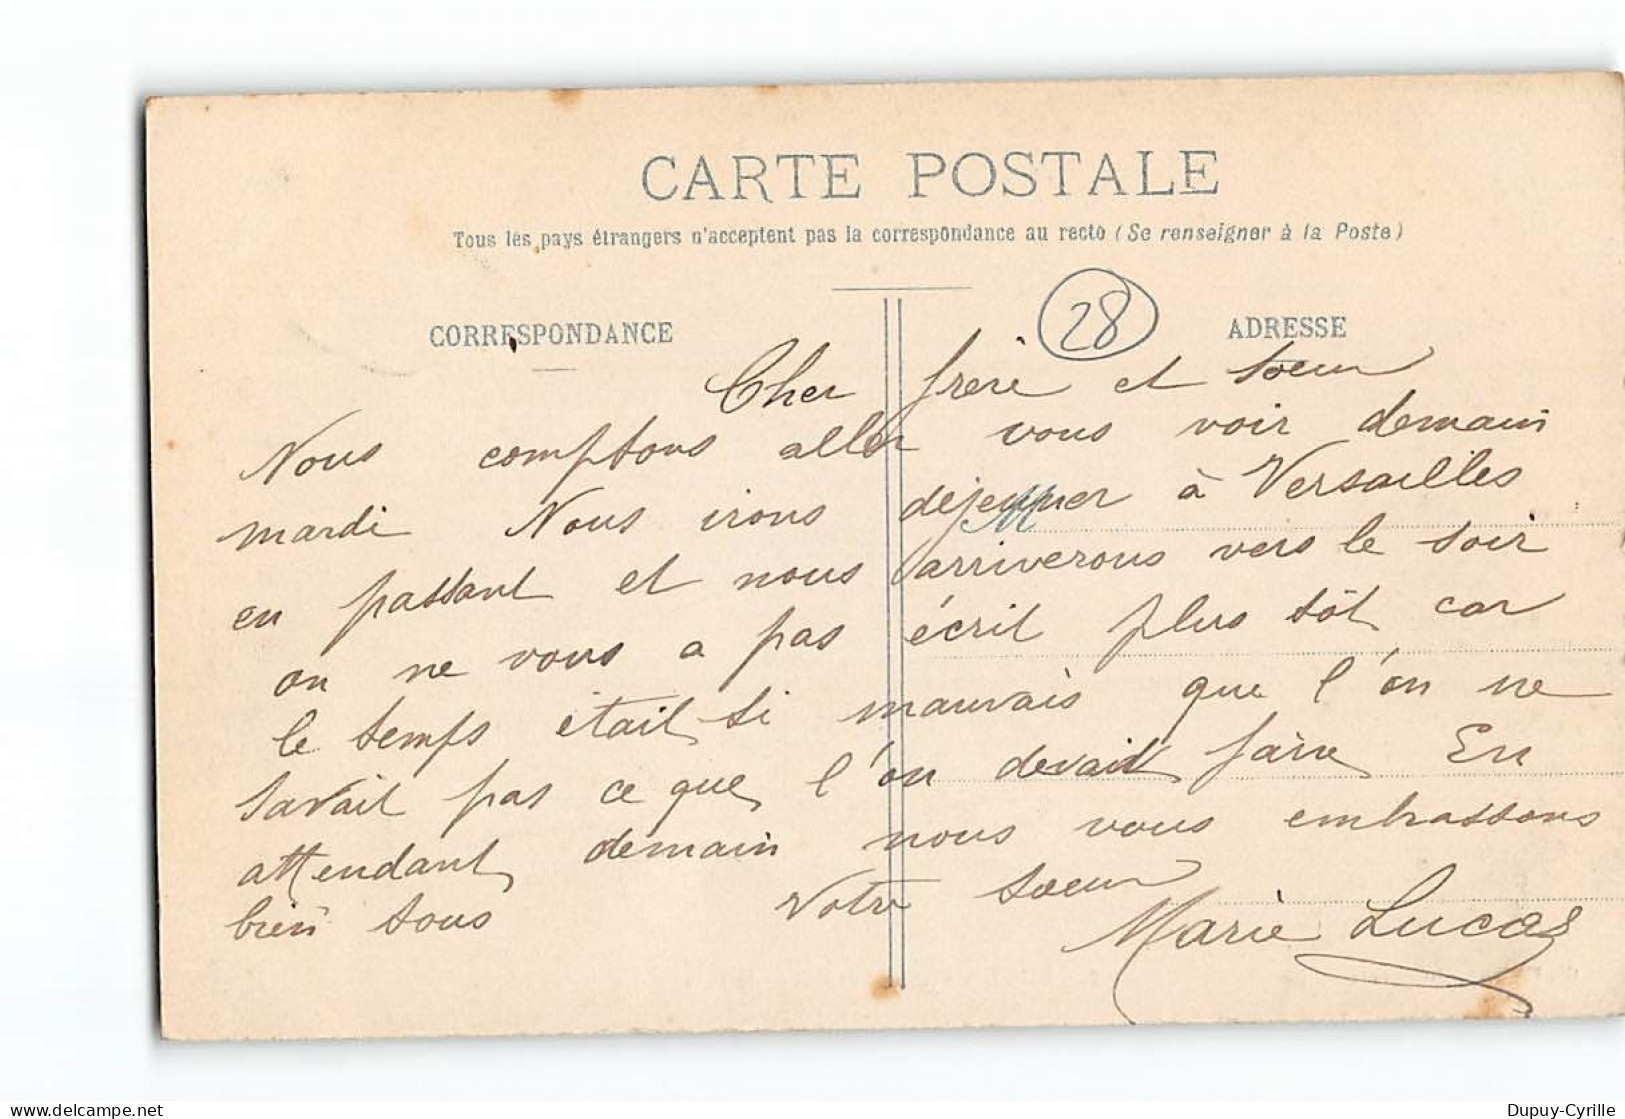 CARTE POSTALE
Tous les pays étrangers n'acceptent pas la correspondance au recto (Se renseigner à la Poste)
28
CORRESPONDANCE ADRESSE
Cher frère et soeur
Nous comptons aller vous voir demain
mardi Nous irons déjeuner à Versailles
M
en passant et nous arriverons vers le soir
on ne vous a pas écrit plus tôt car
le temps était si mauvais que l'on ne
savait pas ce que l'on devait faire En
attendant demain nous vous embrassons
bien tous Votre soeur
Marie Lucas
delcampe.net
Dupuy-Cyrille